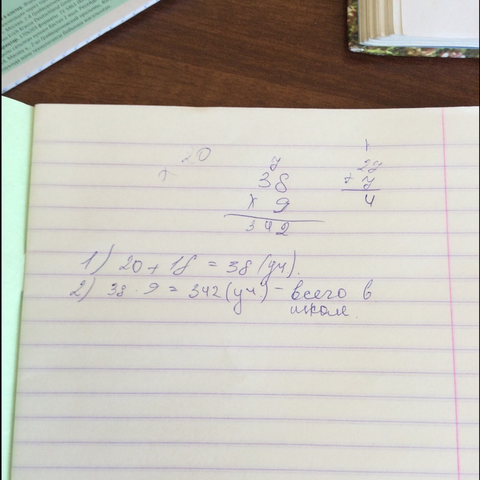 20
+
7
38
× 9
342
1
27
+ 7
4
1) 20 + 18 = 38 (уч).
2) 38 · 9 = 342 (уч) – всего в
школе.